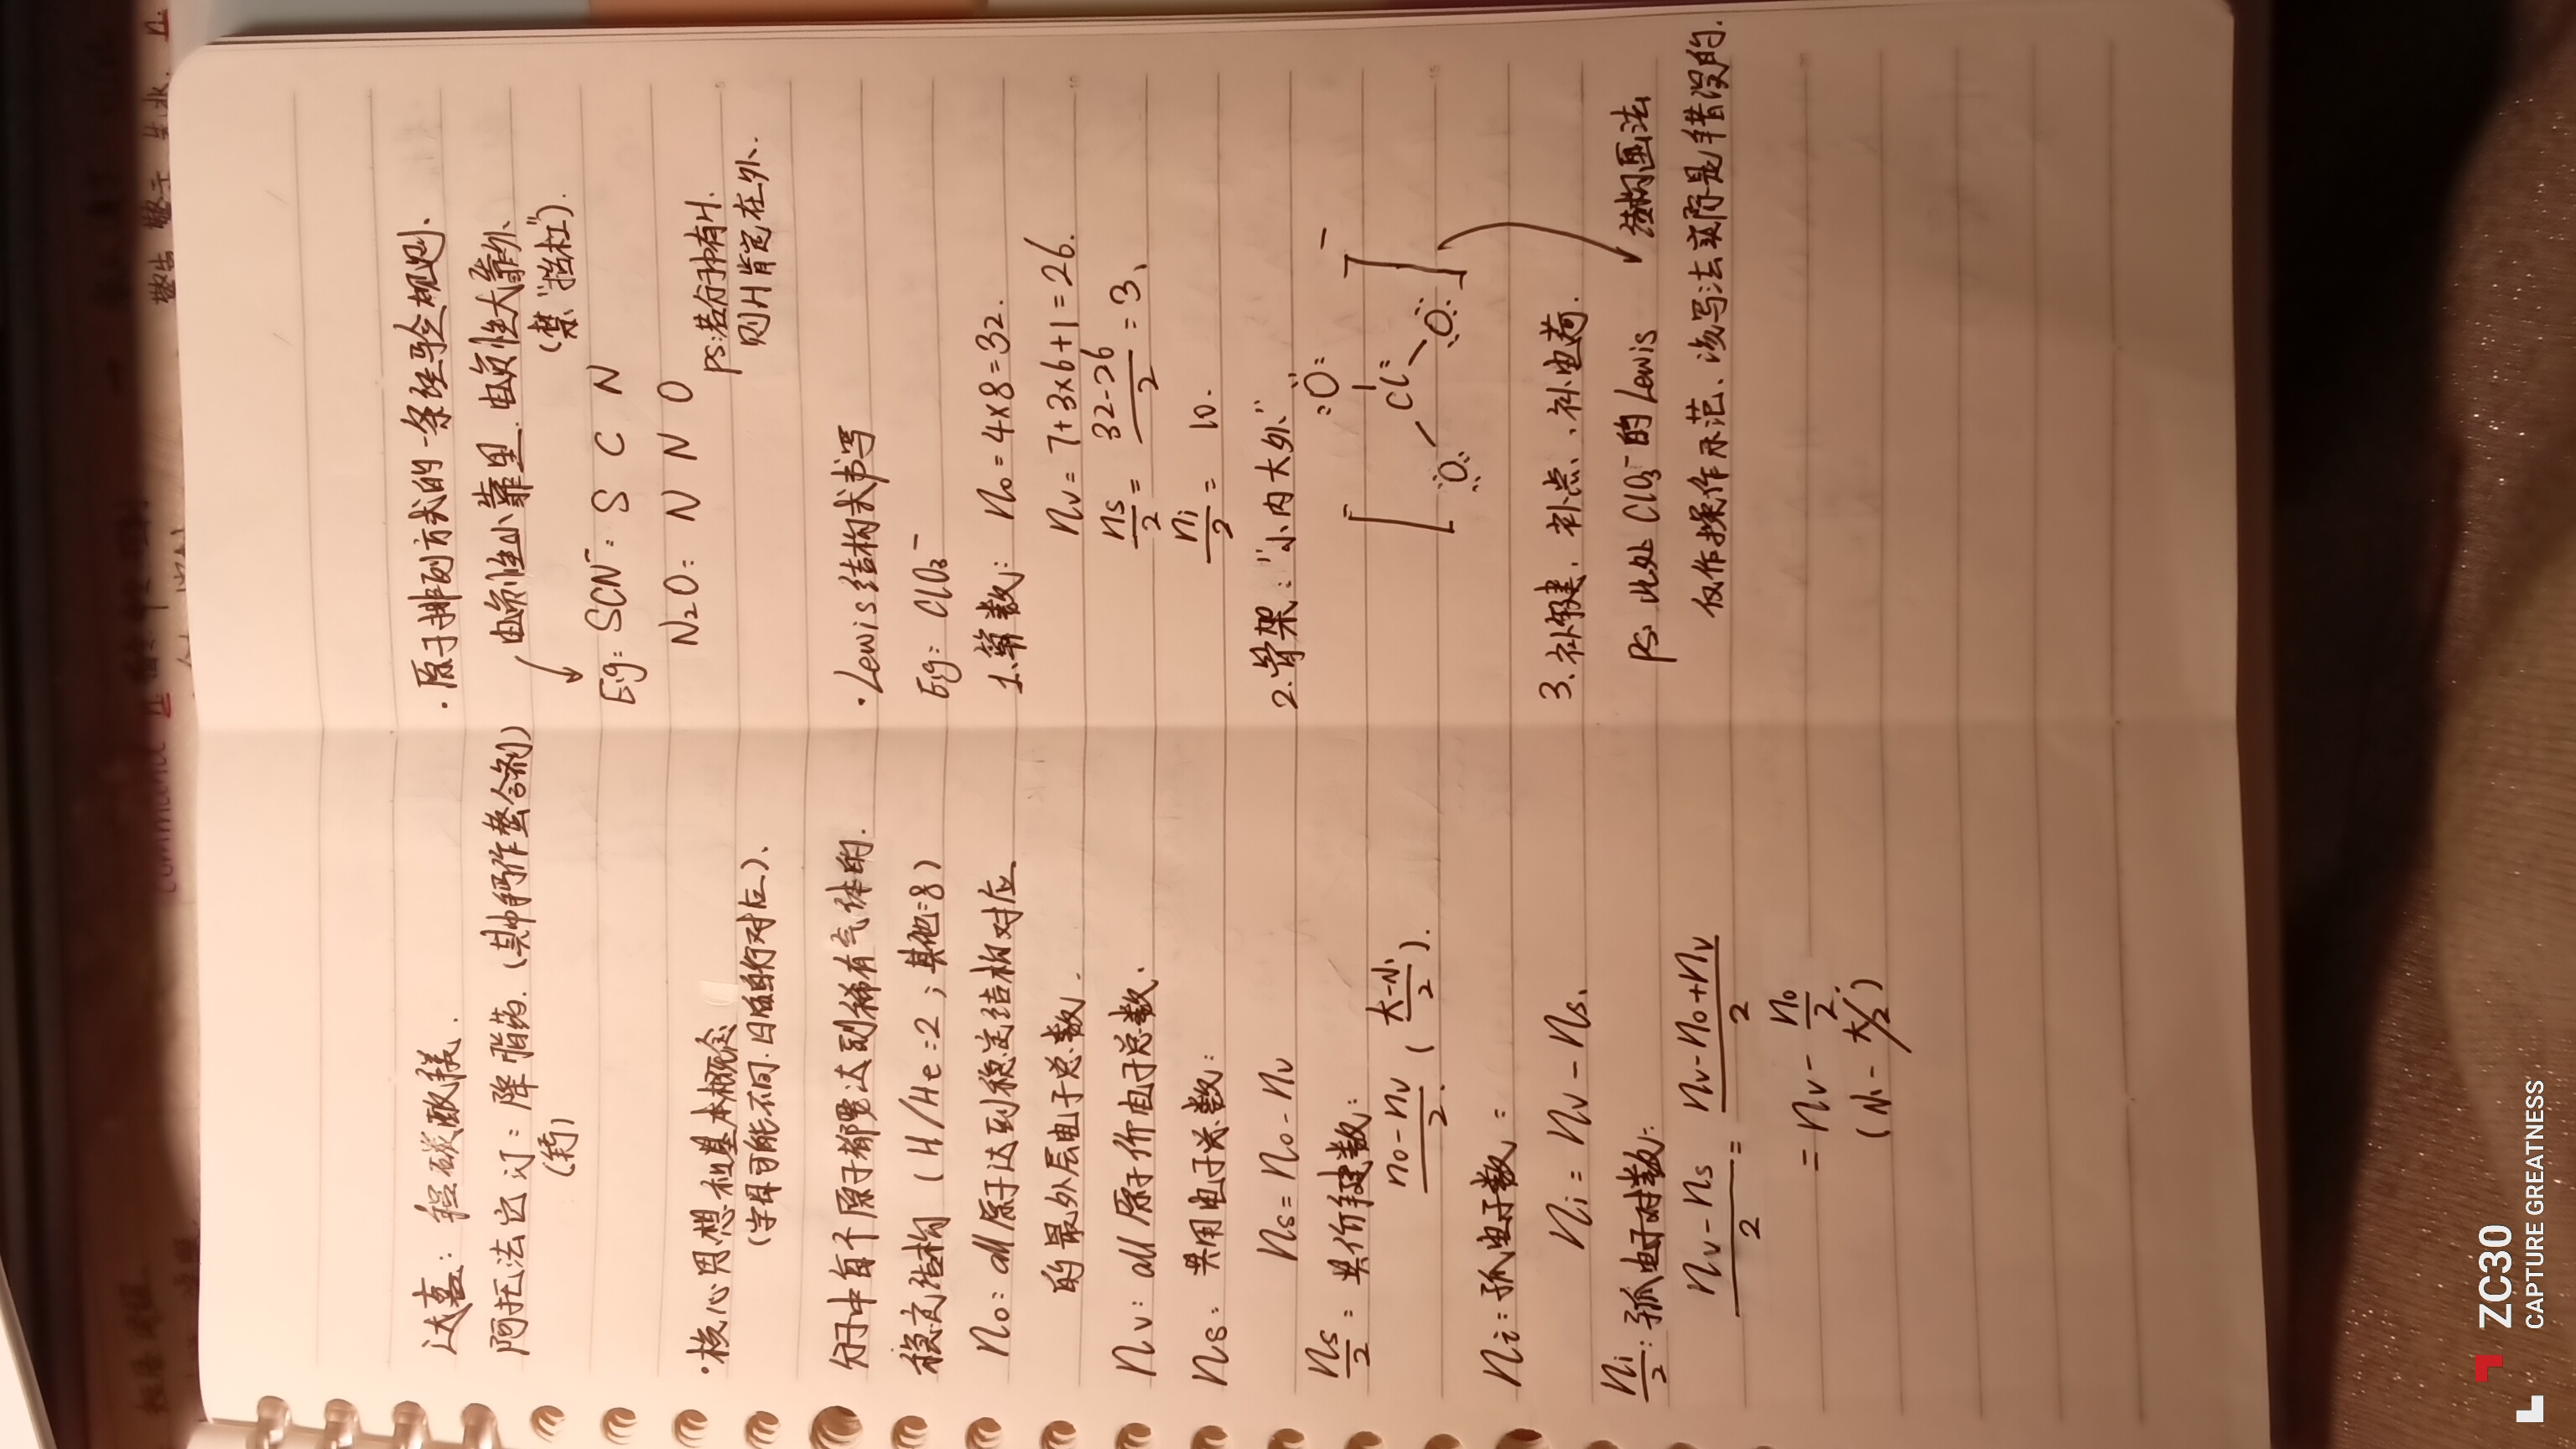 达喜：铝碳酸镁.
阿托伐它汀：降脂药.（其中钙作螯合剂）
（钙）
·核心思想和基本概念
（字母可能不同.日后自行对应）、
分子中每个原子都要达到稀有气体的
稳定结构（H/He:2；其他:8）
n₀：all原子达到稳定结构对应
的最外层电子总数.
nv：all原子价电子总数.
ns：共用电子总数：
ns = n₀ - nv
ns/2：共价键数：
(n₀-nv)/2.（(大-小)/2）.
ni：孤电子数：
ni = nv - ns.
ni/2：孤电子对数：
(nv - ns)/2 = (nv - n₀ + nv)/2
= nv - n₀/2.
（小 - 大/2）
·原子排列方式的一条经验规则.
电负性小靠里.电负性大靠外.
（禁“抬杠”）.
Eg: SCN⁻: S C N
N₂O: N N O
PS:若分子中有H.
则H肯定在外.
·Lewis结构式书写
Eg: ClO₃⁻
1.算数：n₀ = 4×8 = 32.
nv = 7+3×6+1 = 26.
ns/2 = (32-26)/2 = 3、
ni/2 = 10.
2.骨架：“小内大外”
O
[ O Cl O ]⁻
3.补键、补点、补电荷.
结构画法
PS: 此处ClO₃⁻的Lewis
仅作操作示范、该写法实际是错误的.
ZC30
CAPTURE GREATNESS